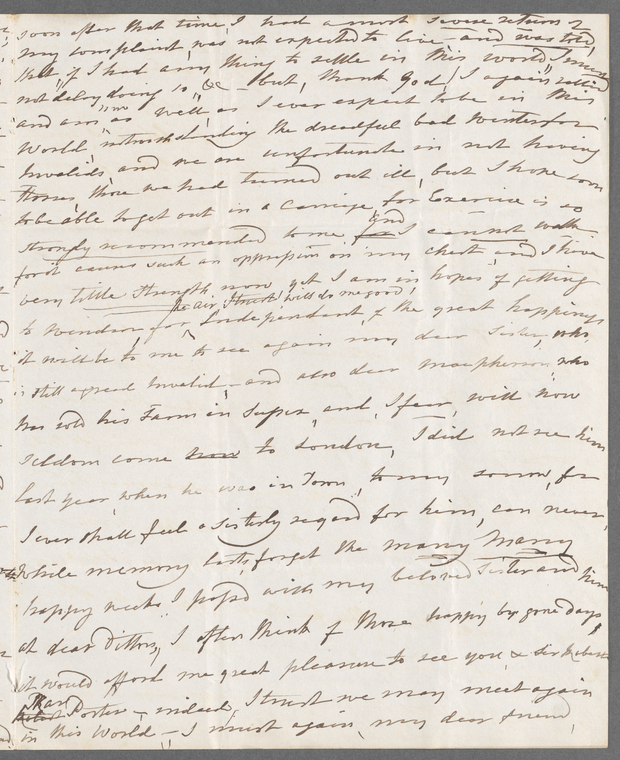 soon after that time, I had a most severe return of
my complaint, was not expected to live - and was told,
that, if I had any thing to settle in this world, I must
not delay doing so, &c - but, thank God! I again rallied
and am "now" as well, as I ever expect to be in this
World notwithstanding the dreadful bad Winter for
Invalids, and we are unfortunate in not having
Horses, those we had turned out ill, but I hope soon
to be able to get out in a Carriage, for Exercise is so
strongly recommended to me and I cannot walk
foot causes such an oppression on my chest, and I have
very little strength now, yet I am in hopes of getting
the air I trust, will do me good,
to Windsor, for, Independent, of the great happiness
it will be to me to see again my dear Sister, who
is still a great Invalid, - and also dear Macpherson, who
has sold his Farm in Sussex, and, I fear, will now
seldom come to London, I did not see him
last year, when he was in Town, to my sorrow, for
I ever shall feel a Sisterly regard for him, can never,
while memory lasts, forget the many many
happy weeks I pass'd with my beloved Sister and him
at dear Ditton, I often think of those happy by gone days,
it would afford me great pleasure to see you & Sir Robert
Ker Porter - indeed, I trust we may meet again
in this World - I must again, my dear friend,